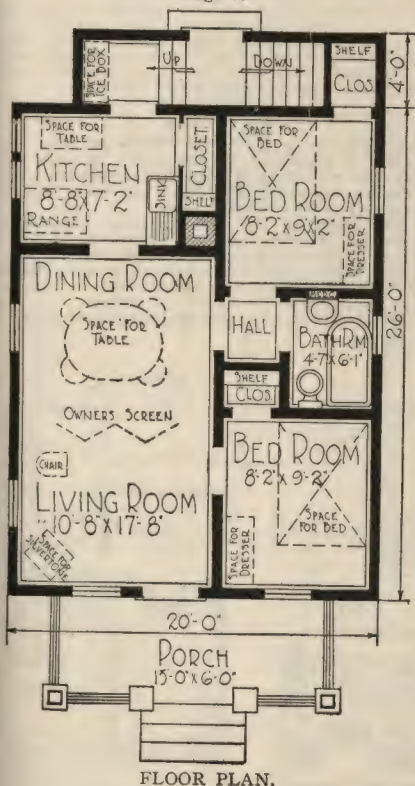 SPACE FOR
ICE BOX
UP
DOWN
SHELF
CLOS.
4'-0"
SPACE FOR
TABLE
KITCHEN
8'-8"X7'-2"
RANGE
SINK
CLOSET
SHELF
SPACE FOR
BED
BED ROOM
8'-2"X9'-2"
SPACE FOR
DRESSER
26'-0"
DINING ROOM
SPACE FOR
TABLE
HALL
MEDC
BATH RM.
4'-7"X6'-1"
SHELF
CLOS.
OWNERS SCREEN
CHAIR
LIVING ROOM
10'-8"X17'-8"
SPACE FOR
SILVERTONE
BED ROOM
8'-2"X9'-2"
SPACE
FOR BED
SPACE FOR
DRESSER
20'-0"
PORCH
15'-0"X6'-0"
FLOOR PLAN.